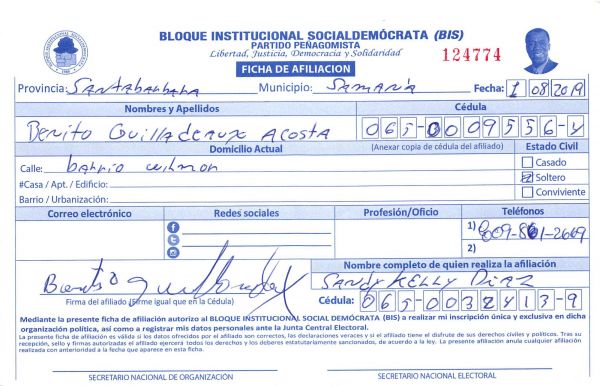 BLOQUE INSTITUCIONAL SOCIALDEMÓCRATA (BIS)
PARTIDO PEÑAGOMISTA
Libertad, Justicia, Democracia y Solidaridad
124774
FICHA DE AFILIACION
Provincia: Santa barbara Municipio: SAMANA Fecha: 1 08 2019
Nombres y Apellidos Cédula
Benito Guilladeaux Acosta 065-0009556-4
Domicilio Actual (Anexar copia de cédula del afiliado) Estado Civil
Calle: barrio wilmon Casado
#Casa / Apt. / Edificio: Soltero
Barrio / Urbanización: Conviviente
Correo electrónico Redes sociales Profesión/Oficio Teléfonos
1) 809-861-2669
2)
Nombre completo de quien realiza la afiliación
Benito SANDY KELLY DIAZ
Firma del afiliado (Firme igual que en la Cédula) Cédula: 065-0032413-9
Mediante la presente ficha de afiliación autorizo al BLOQUE INSTITUCIONAL SOCIAL DEMÓCRATA (BIS) a realizar mi inscripción única y exclusiva en dicha
organización política, así como a registrar mis datos personales ante la Junta Central Electoral.
La presente ficha de afiliación es válida si los datos ofrecidos por el afiliado son correctos, las declaraciones veraces y si el afiliado tiene el disfrute de sus derechos civiles y políticos. Tras su
recepción, sello y firmas autorizadas el afiliado ejercerá todos los derechos y los deberes estatutariamente sancionados, de acuerdo a la ley. La presente afiliación anula cualquier afiliación
realizada con anterioridad a la fecha que aparece en esta ficha.
SECRETARIO NACIONAL DE ORGANIZACIÓN SECRETARIO NACIONAL ELECTORAL